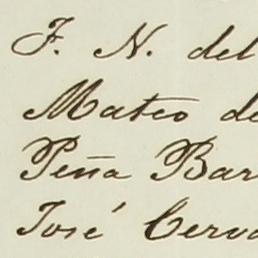 F. N. del
Mateo de
Peña Bar
José Cerva